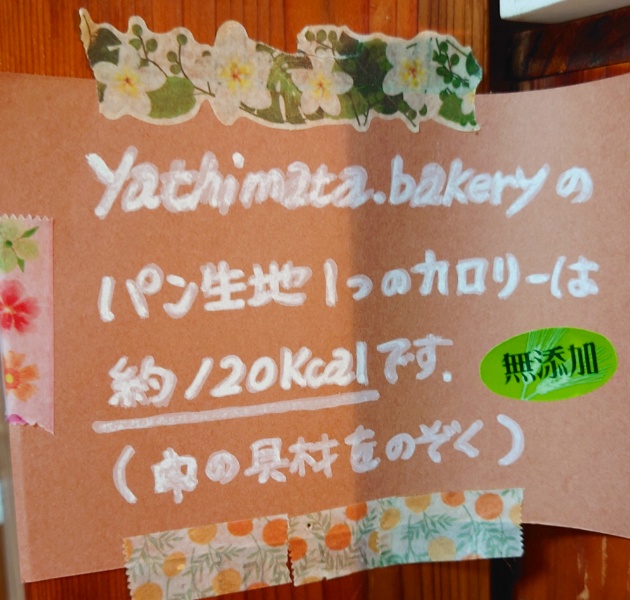 Yachimata.bakeryの
パン生地1つのカロリーは
約120Kcalです.
無添加
(中の具材をのぞく)